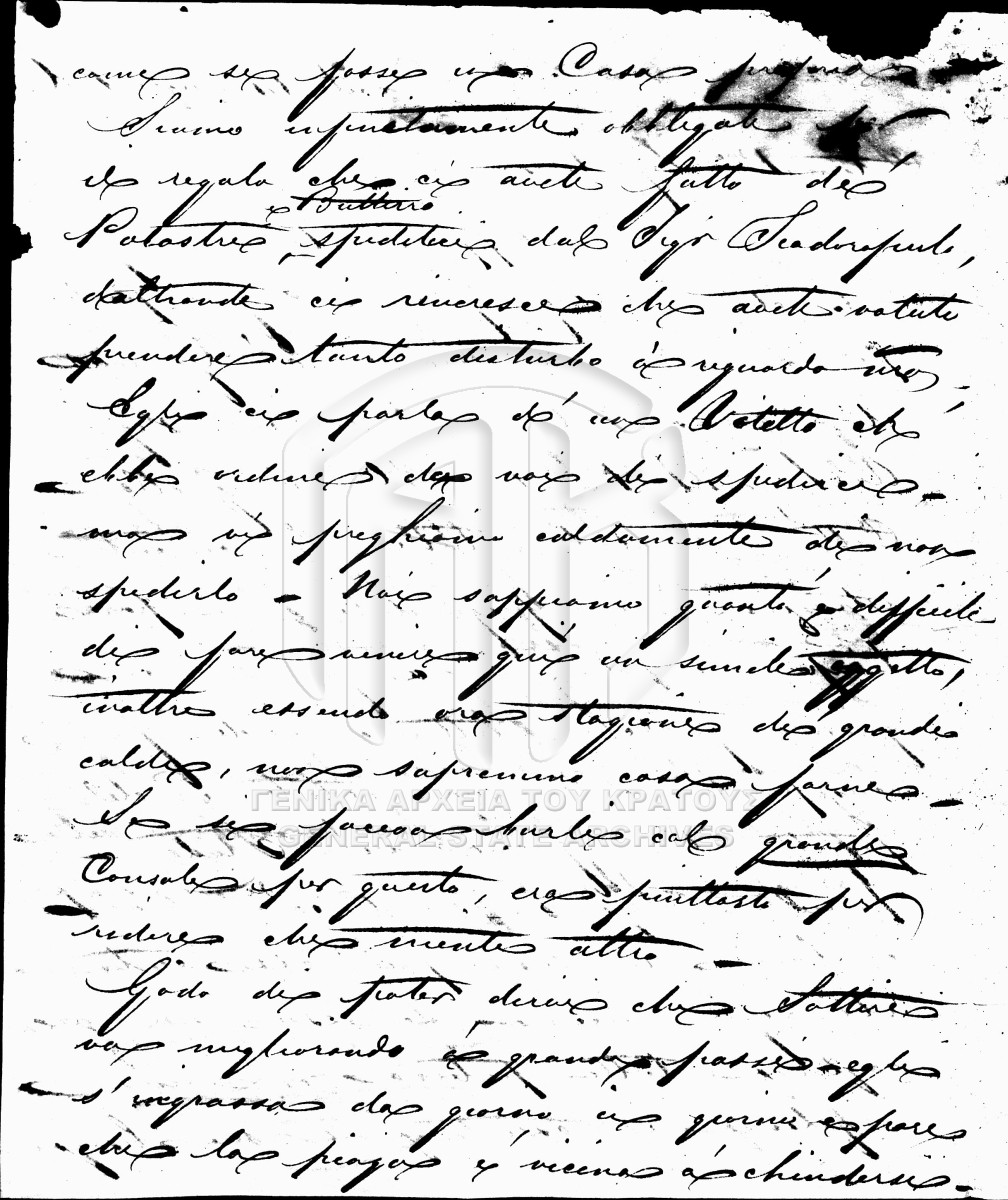 come se fosse in Casa propria
Siamo infinitamente obbligati per
il regalo che ci avete fatto dé
e Buttirro
Polastri, speditici dal Sigr
d'altronde ci rincresce che avete voluto
prendere tanto disturbo à riguardo nro,
Egli ci parla d' un Vitello ch'
ebbe ordine da voi di spedirci -
ma vi preghiamo caldamente di non
spedirlo - Noi sappiamo quanto è difficile
di fare venire qui un simile oggetto,
inoltre essendo ora stagione di grandi
caldi, non sapremmo cosa farne -
Se si faceva burle col grande
Console per questo, era piuttosto per
ridere che niente altro -
Godo di poter dirvi che Sottiri
va migliorando à grandi passi - egli
s'ingrassa da giorno in giorno e pare
che la piaga è vicina à chiudersi -
ΓΕΝΙΚΑ ΑΡΧΕΙΑ ΤΟΥ ΚΡΑΤΟΥΣ
GENERAL STATE ARCHIVES